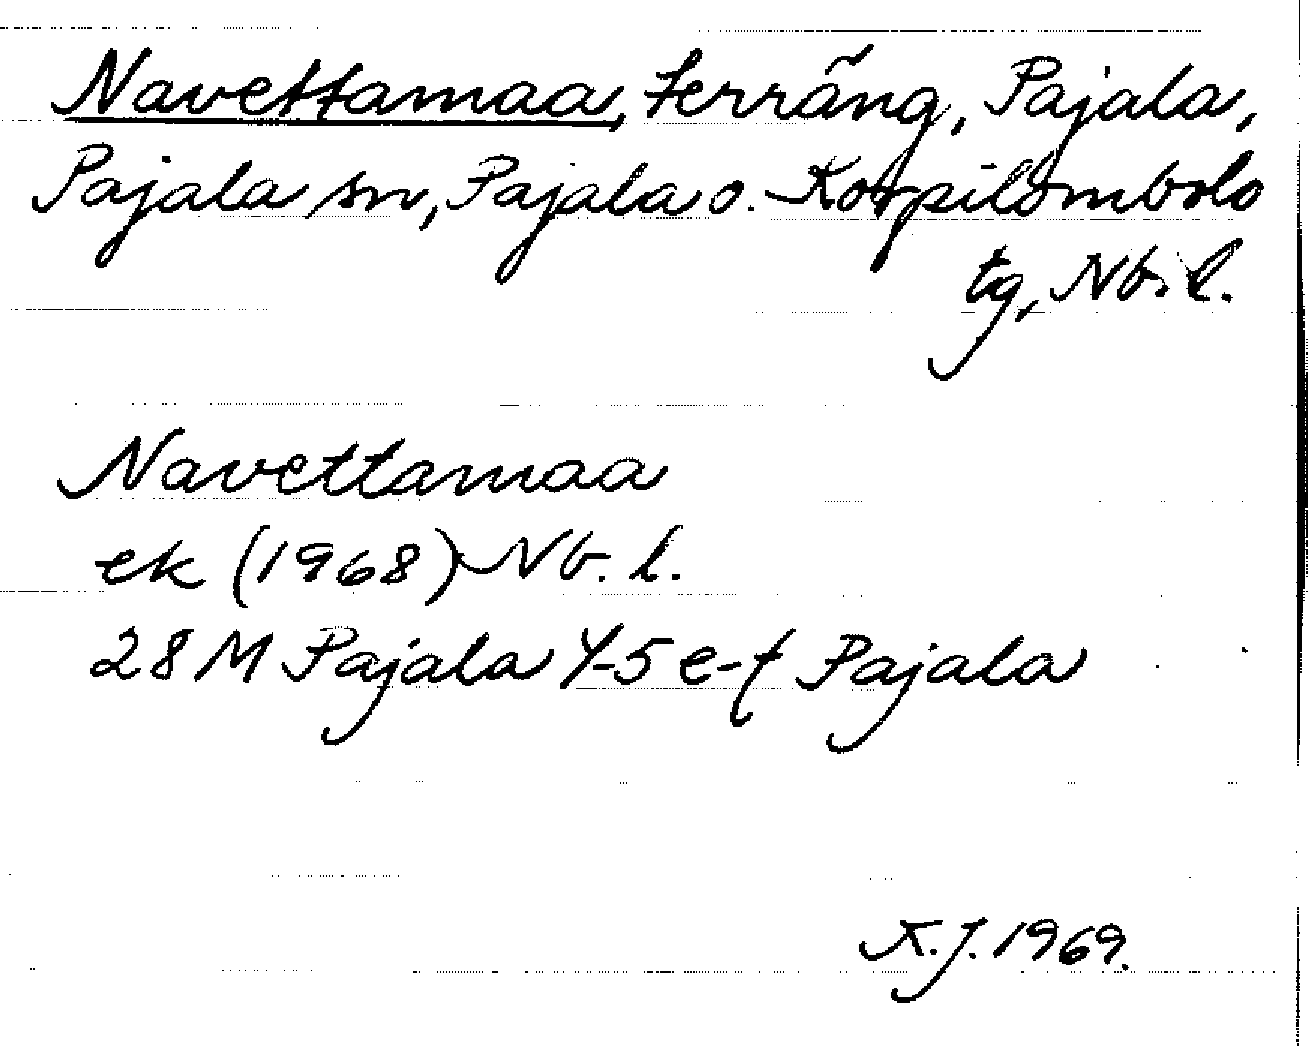 Navettamaa, terräng, Pajala,
Pajala sn, Pajala o. Korpilombolo
tg, Nb. l.
Navettamaa
ek (1968) Nb. l.
28 M Pajala Y-5 e-f Pajala
K.J. 1969.